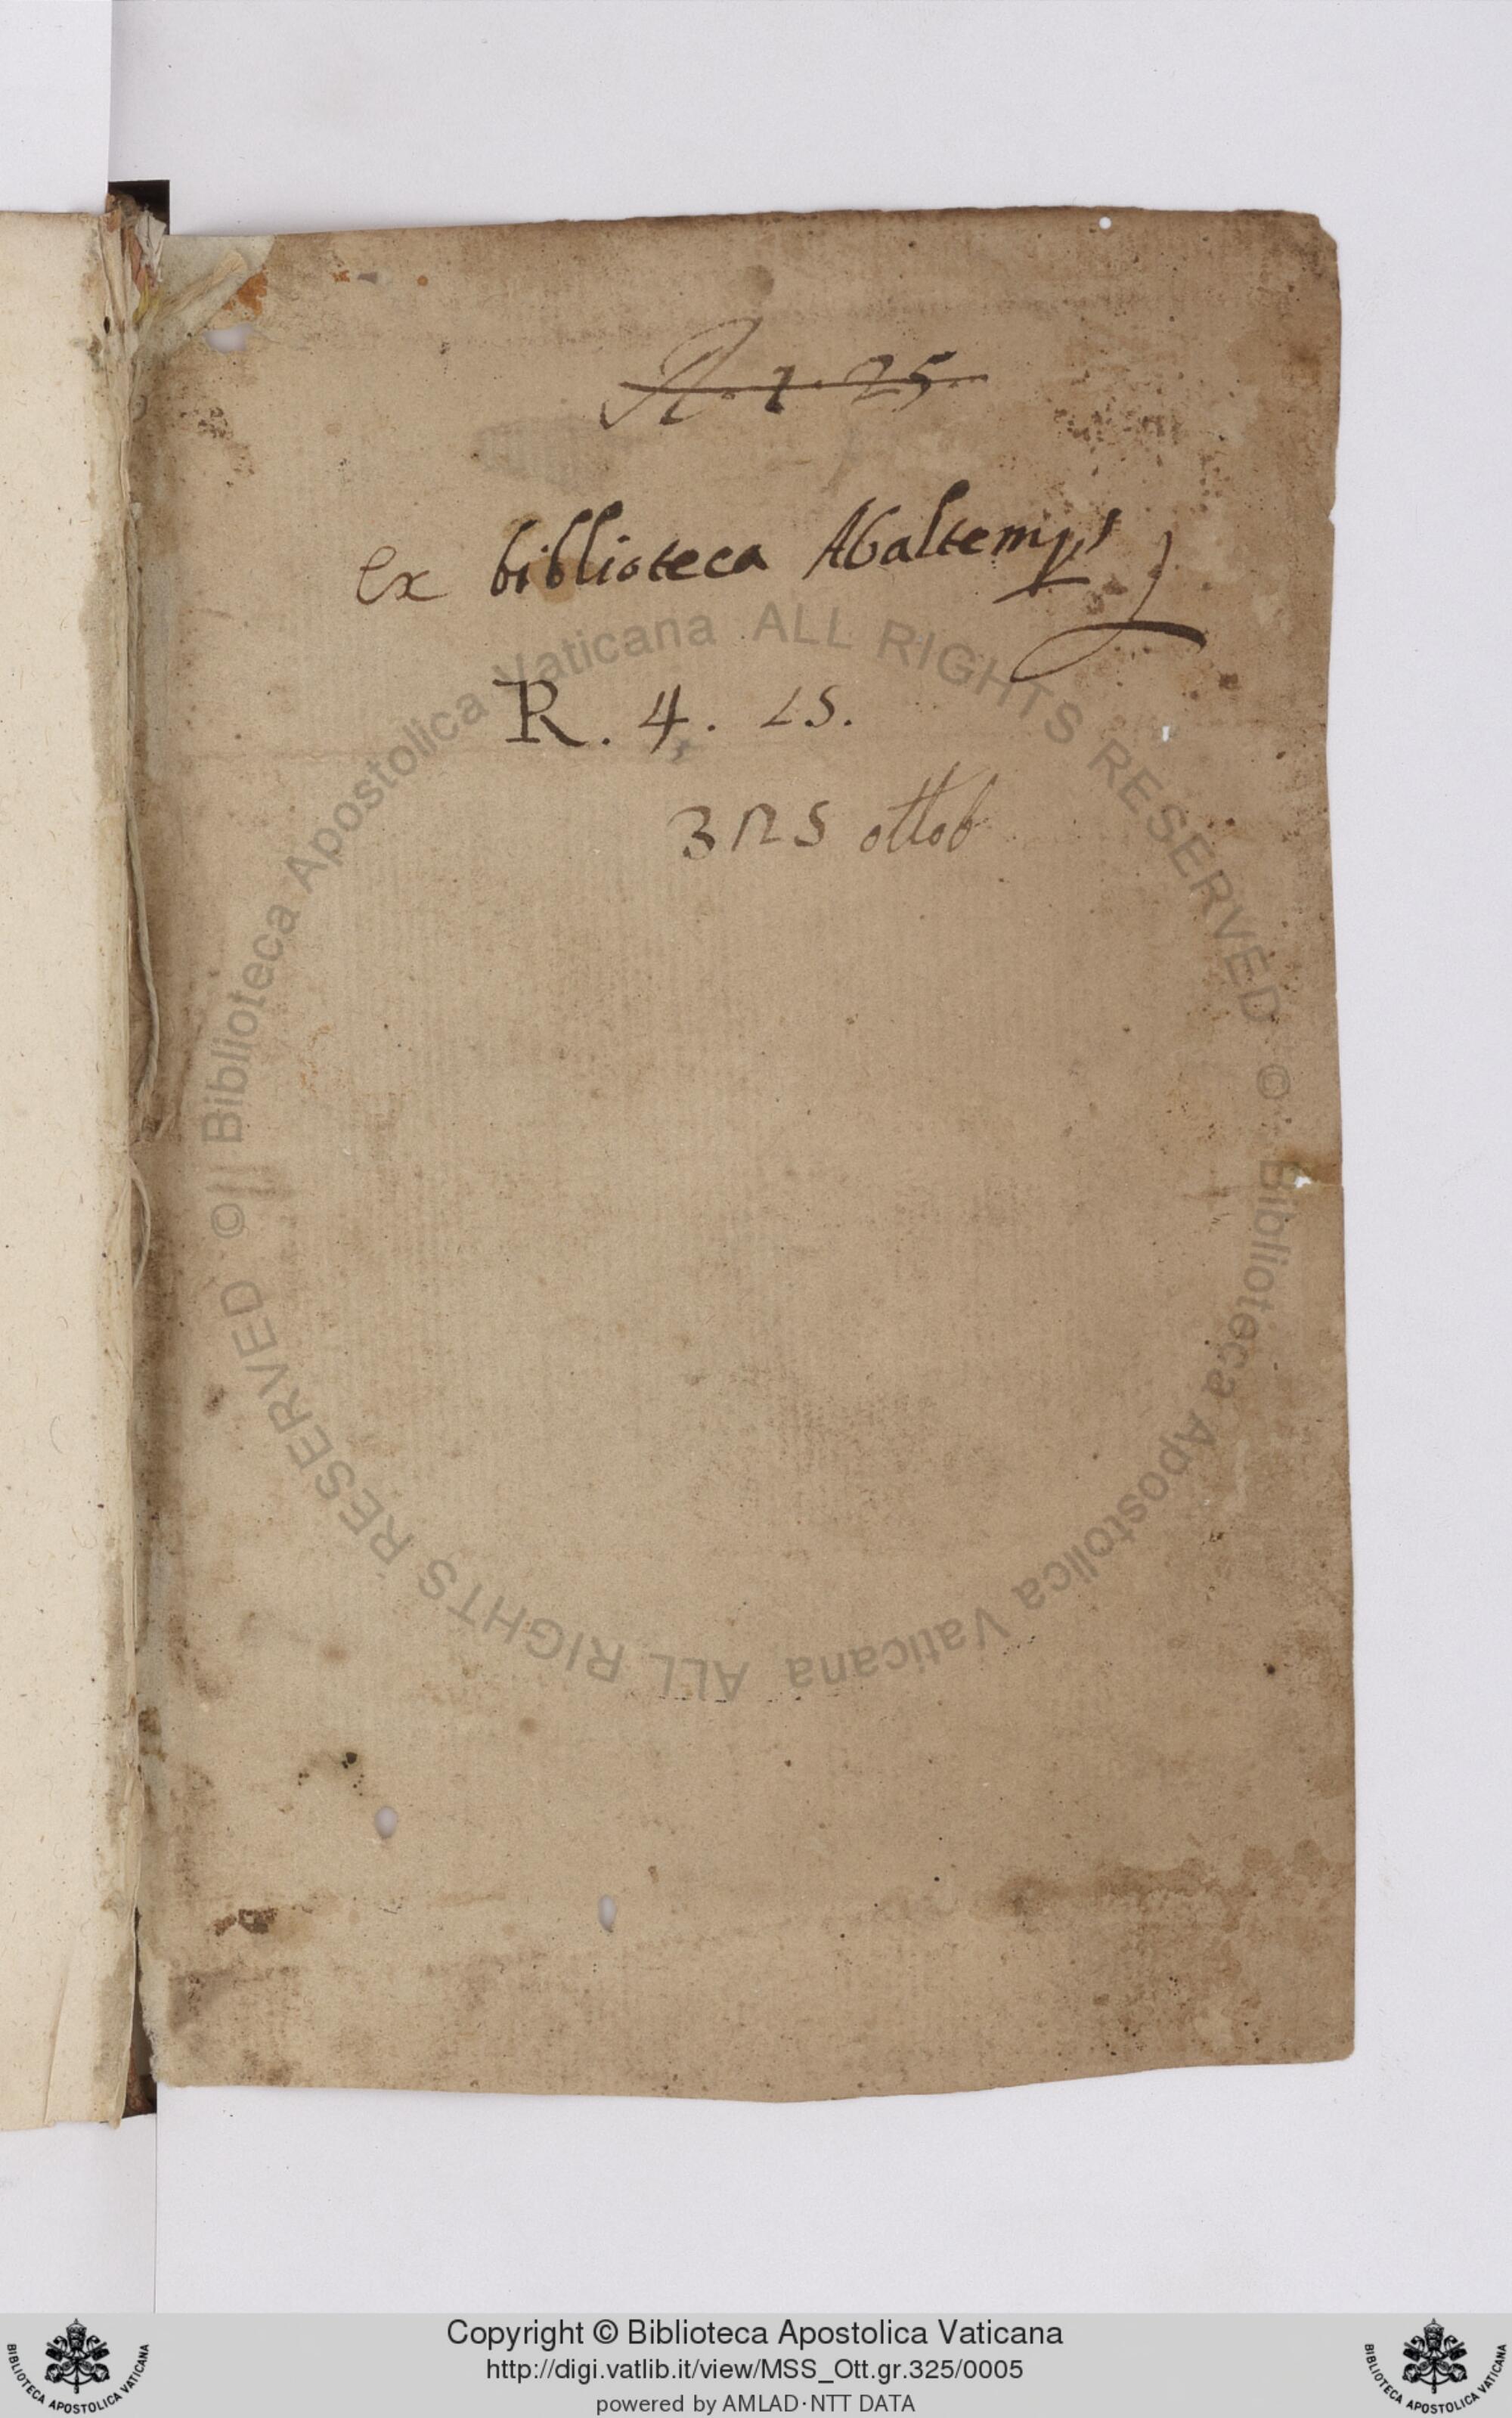 R. 1. 25.
ex biblioteca Maltemps
R. 4. 25.
325 ottob
© Biblioteca Apostolica Vaticana ALL RIGHTS RESERVED · © Biblioteca Apostolica Vaticana ALL RIGHTS RESERVED ·
Copyright © Biblioteca Apostolica Vaticana
http://digi.vatlib.it/view/MSS_Ott.gr.325/0005
powered by AMLAD·NTT DATA
BIBLIOTECA APOSTOLICA VATICANA
BIBLIOTECA APOSTOLICA VATICANA